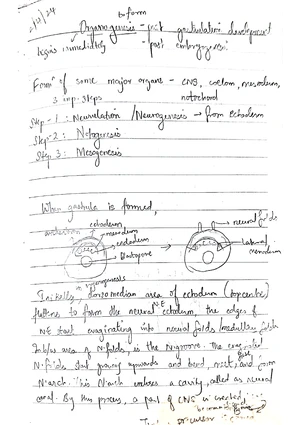 2/12/24
to form
Organogenesis - post gastrulation development
begins immediately - post embryogenesis
Formⁿ of some major organs - CNS, coelom, mesoderm,
3 imp. steps notochord
Step-1: Neurulation / Neurogenesis → from Ectoderm
Step-2: Notogenesis
Step 3: Mesogenesis
When gastrula is formed,
ectoderm
archenteron mesoderm
endoderm
Blastopore
neural folds
lateral mesoderm
Initially, dorsomedian area of ectoderm (topcentre)
flattens to form the neural ectoderm, the edges of
NE start evaginating into neural folds / medullary folds
area of N.folds, is the N.groove. The
N.folds start growing upwards and bend, meet, and form
N.arch. This N.arch encloses a cavity, called as neural
canal. By this process, a part of CNS is created,